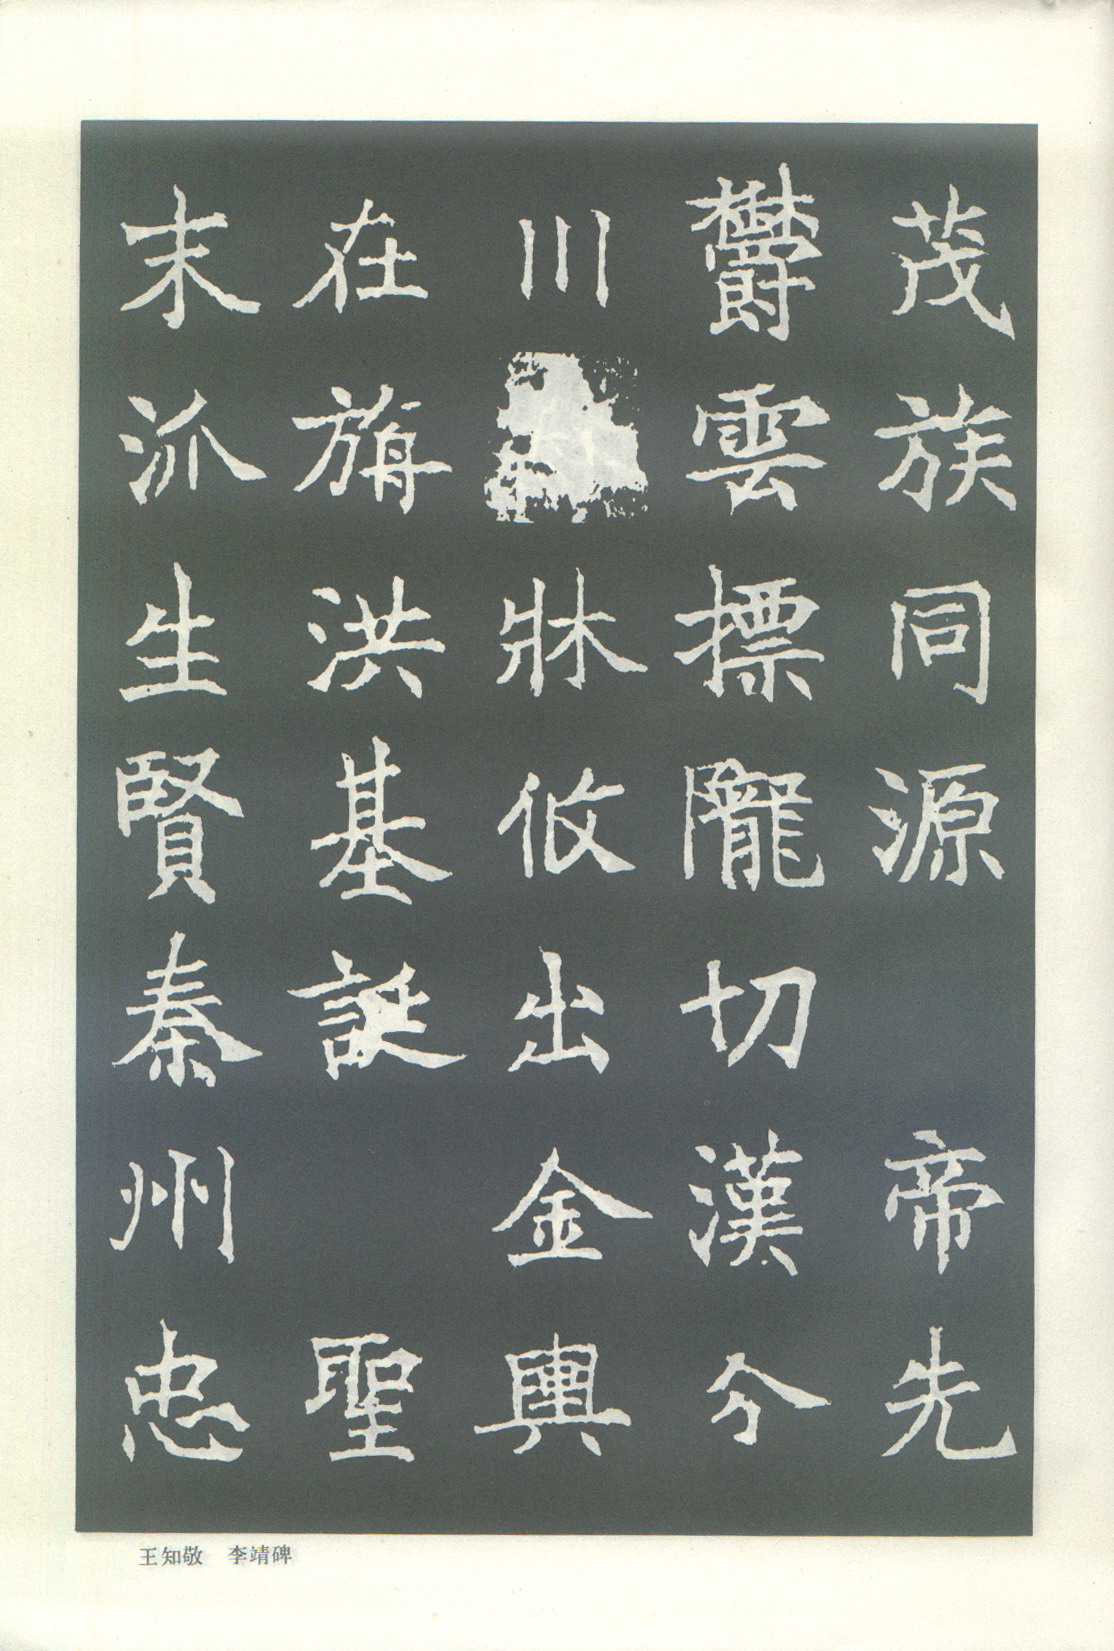 茂族同源 帝先
鬱雲標隴切漢分
川 牀攸出金輿
在旃洪基誕 聖
末派生賢秦州忠
王知敬 李靖碑